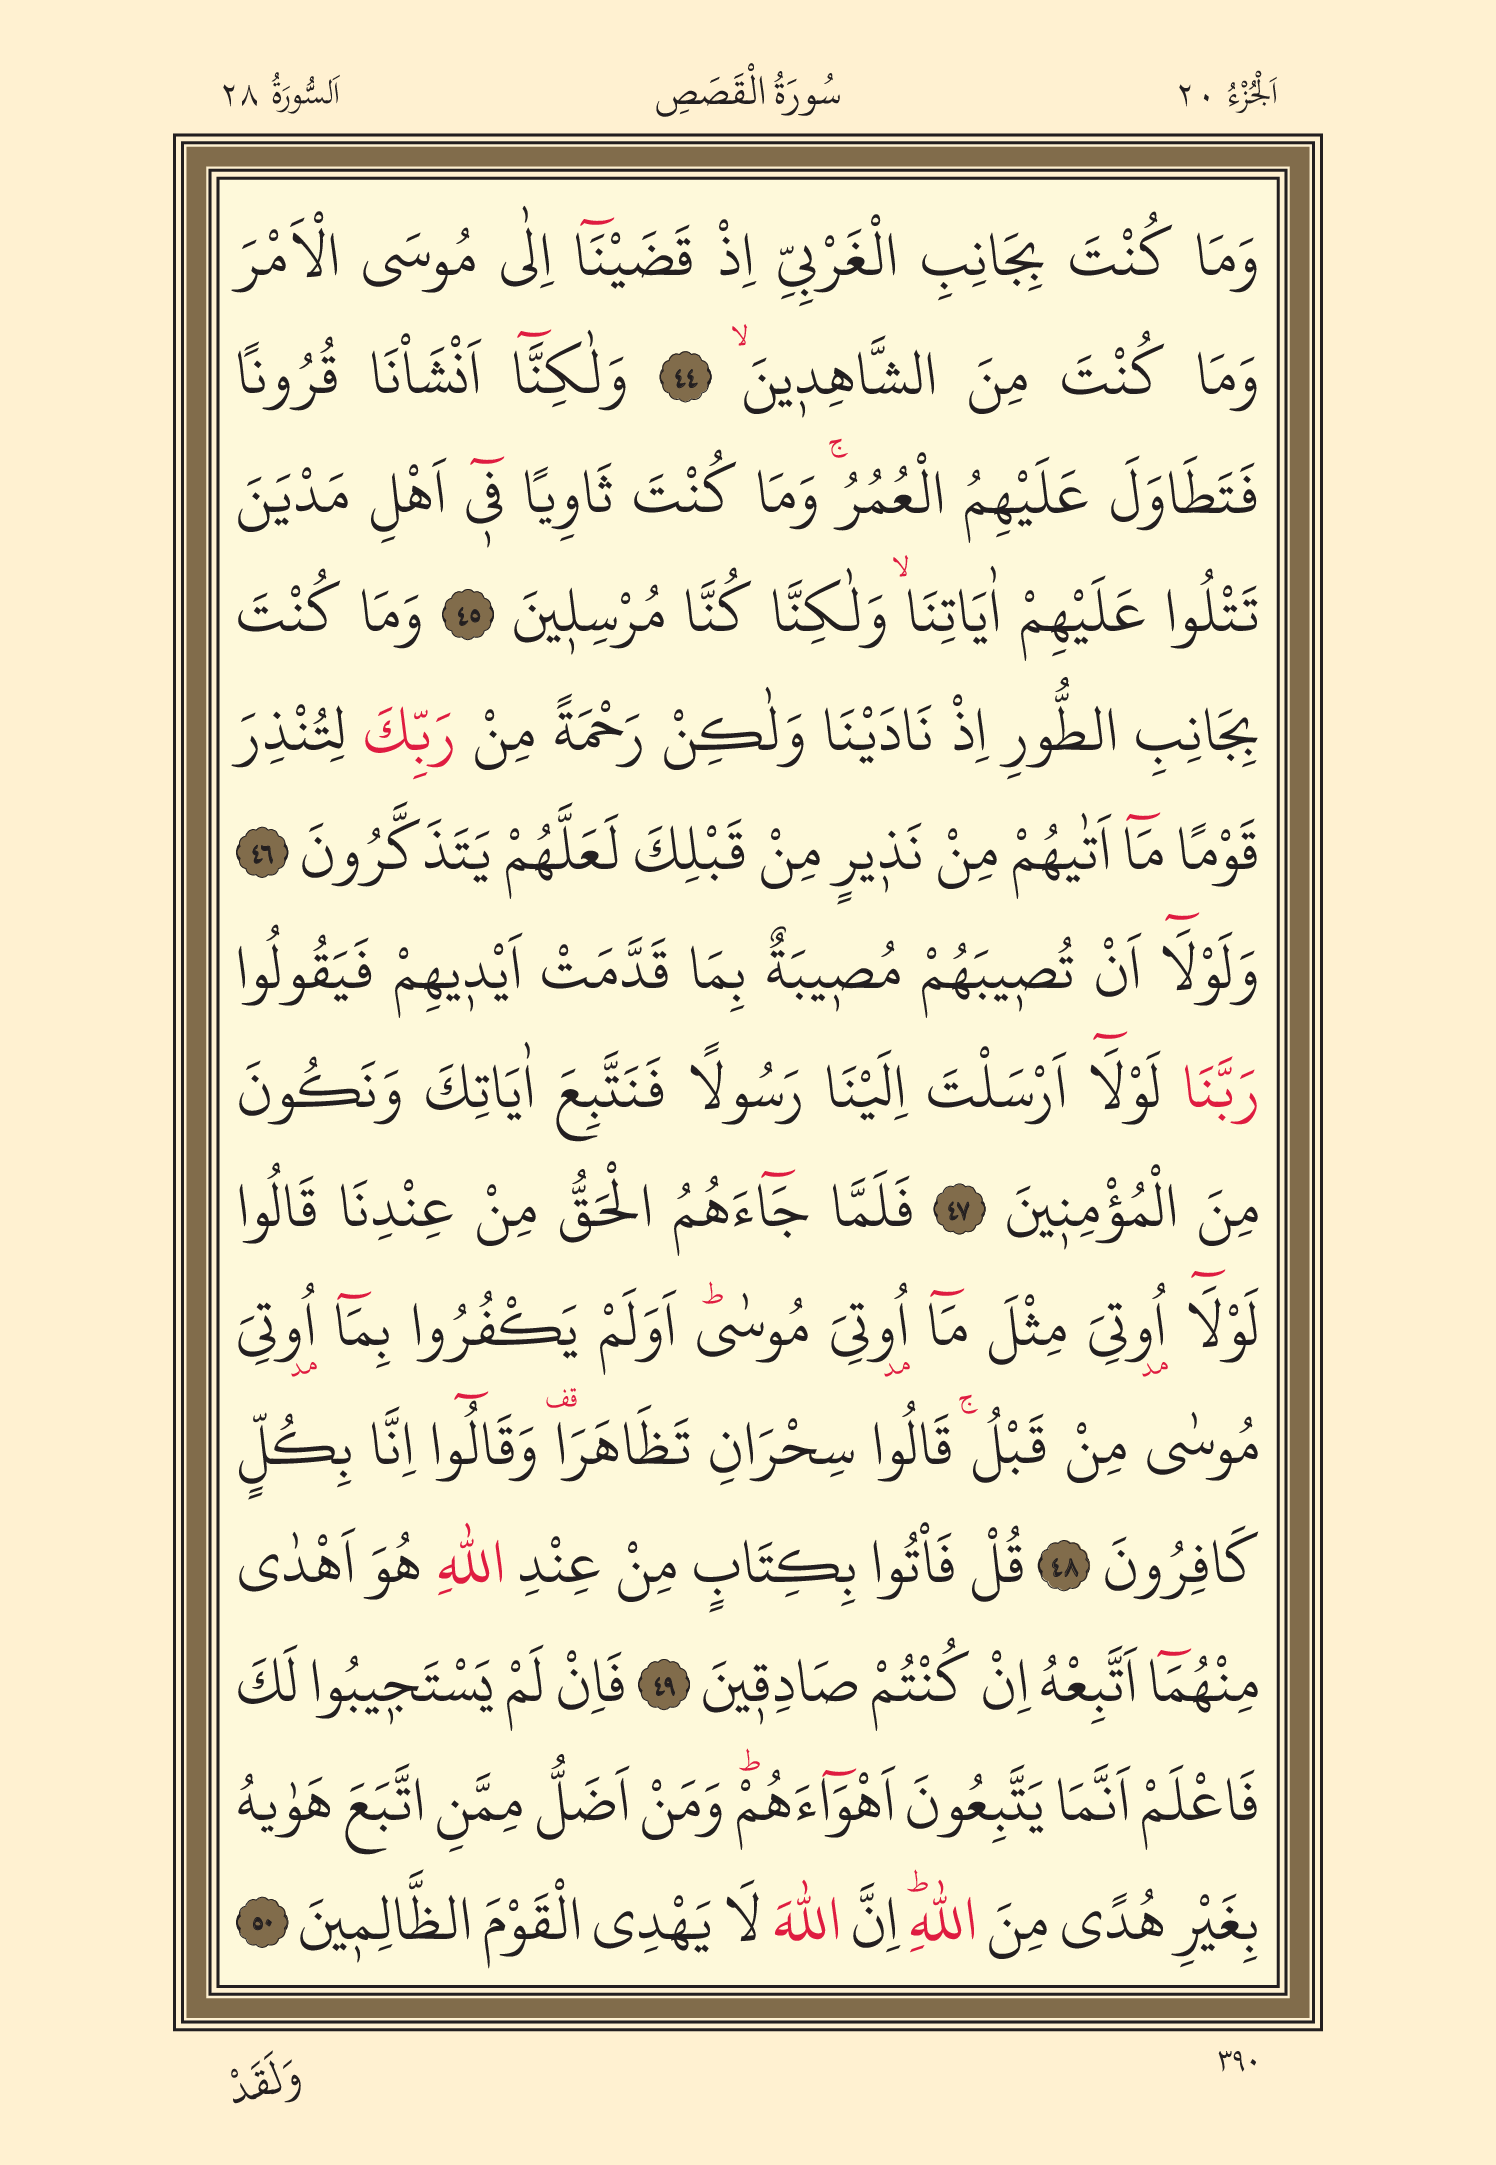 اَلْجُزْءُ ٢٠ سُورَةُ الْقَصَصِ اَلسُّورَةُ ٢٨
وَمَا كُنْتَ بِجَانِبِ الْغَرْبِيِّ اِذْ قَضَيْنَٓا اِلٰى مُوسَى الْاَمْرَ
وَمَا كُنْتَ مِنَ الشَّاهِد۪ينَۙ ٤٤ وَلٰكِنَّٓا اَنْشَاْنَا قُرُونًا
فَتَطَاوَلَ عَلَيْهِمُ الْعُمُرُۚ وَمَا كُنْتَ ثَاوِيًا ف۪ٓي اَهْلِ مَدْيَنَ
تَتْلُوا عَلَيْهِمْ اٰيَاتِنَاۙ وَلٰكِنَّا كُنَّا مُرْسِل۪ينَ ٤٥ وَمَا كُنْتَ
بِجَانِبِ الطُّورِ اِذْ نَادَيْنَا وَلٰكِنْ رَحْمَةً مِنْ رَبِّكَ لِتُنْذِرَ
قَوْمًا مَٓا اَتٰيهُمْ مِنْ نَذ۪يرٍ مِنْ قَبْلِكَ لَعَلَّهُمْ يَتَذَكَّرُونَ ٤٦
وَلَوْلَٓا اَنْ تُص۪يبَهُمْ مُص۪يبَةٌ بِمَا قَدَّمَتْ اَيْد۪يهِمْ فَيَقُولُوا
رَبَّنَا لَوْلَٓا اَرْسَلْتَ اِلَيْنَا رَسُولًا فَنَتَّبِعَ اٰيَاتِكَ وَنَكُونَ
مِنَ الْمُؤْمِن۪ينَ ٤٧ فَلَمَّا جَٓاءَهُمُ الْحَقُّ مِنْ عِنْدِنَا قَالُوا
لَوْلَٓا اُو۫تِيَ مِثْلَ مَٓا اُو۫تِيَ مُوسٰىۜ اَوَلَمْ يَكْفُرُوا بِمَٓا اُو۫تِيَ
مُوسٰى مِنْ قَبْلُۚ قَالُوا سِحْرَانِ تَظَاهَرَا۠ قف وَقَالُٓوا اِنَّا بِكُلٍّ
كَافِرُونَ ٤٨ قُلْ فَاْتُوا بِكِتَابٍ مِنْ عِنْدِ اللّٰهِ هُوَ اَهْدٰى
مِنْهُمَٓا اَتَّبِعْهُ اِنْ كُنْتُمْ صَادِق۪ينَ ٤٩ فَاِنْ لَمْ يَسْتَج۪يبُوا لَكَ
فَاعْلَمْ اَنَّمَا يَتَّبِعُونَ اَهْوَٓاءَهُمْۜ وَمَنْ اَضَلُّ مِمَّنِ اتَّبَعَ هَوٰيهُ
بِغَيْرِ هُدًى مِنَ اللّٰهِۜ اِنَّ اللّٰهَ لَا يَهْدِى الْقَوْمَ الظَّالِم۪ينَ ٥٠
٣٩٠ وَلَقَدْ